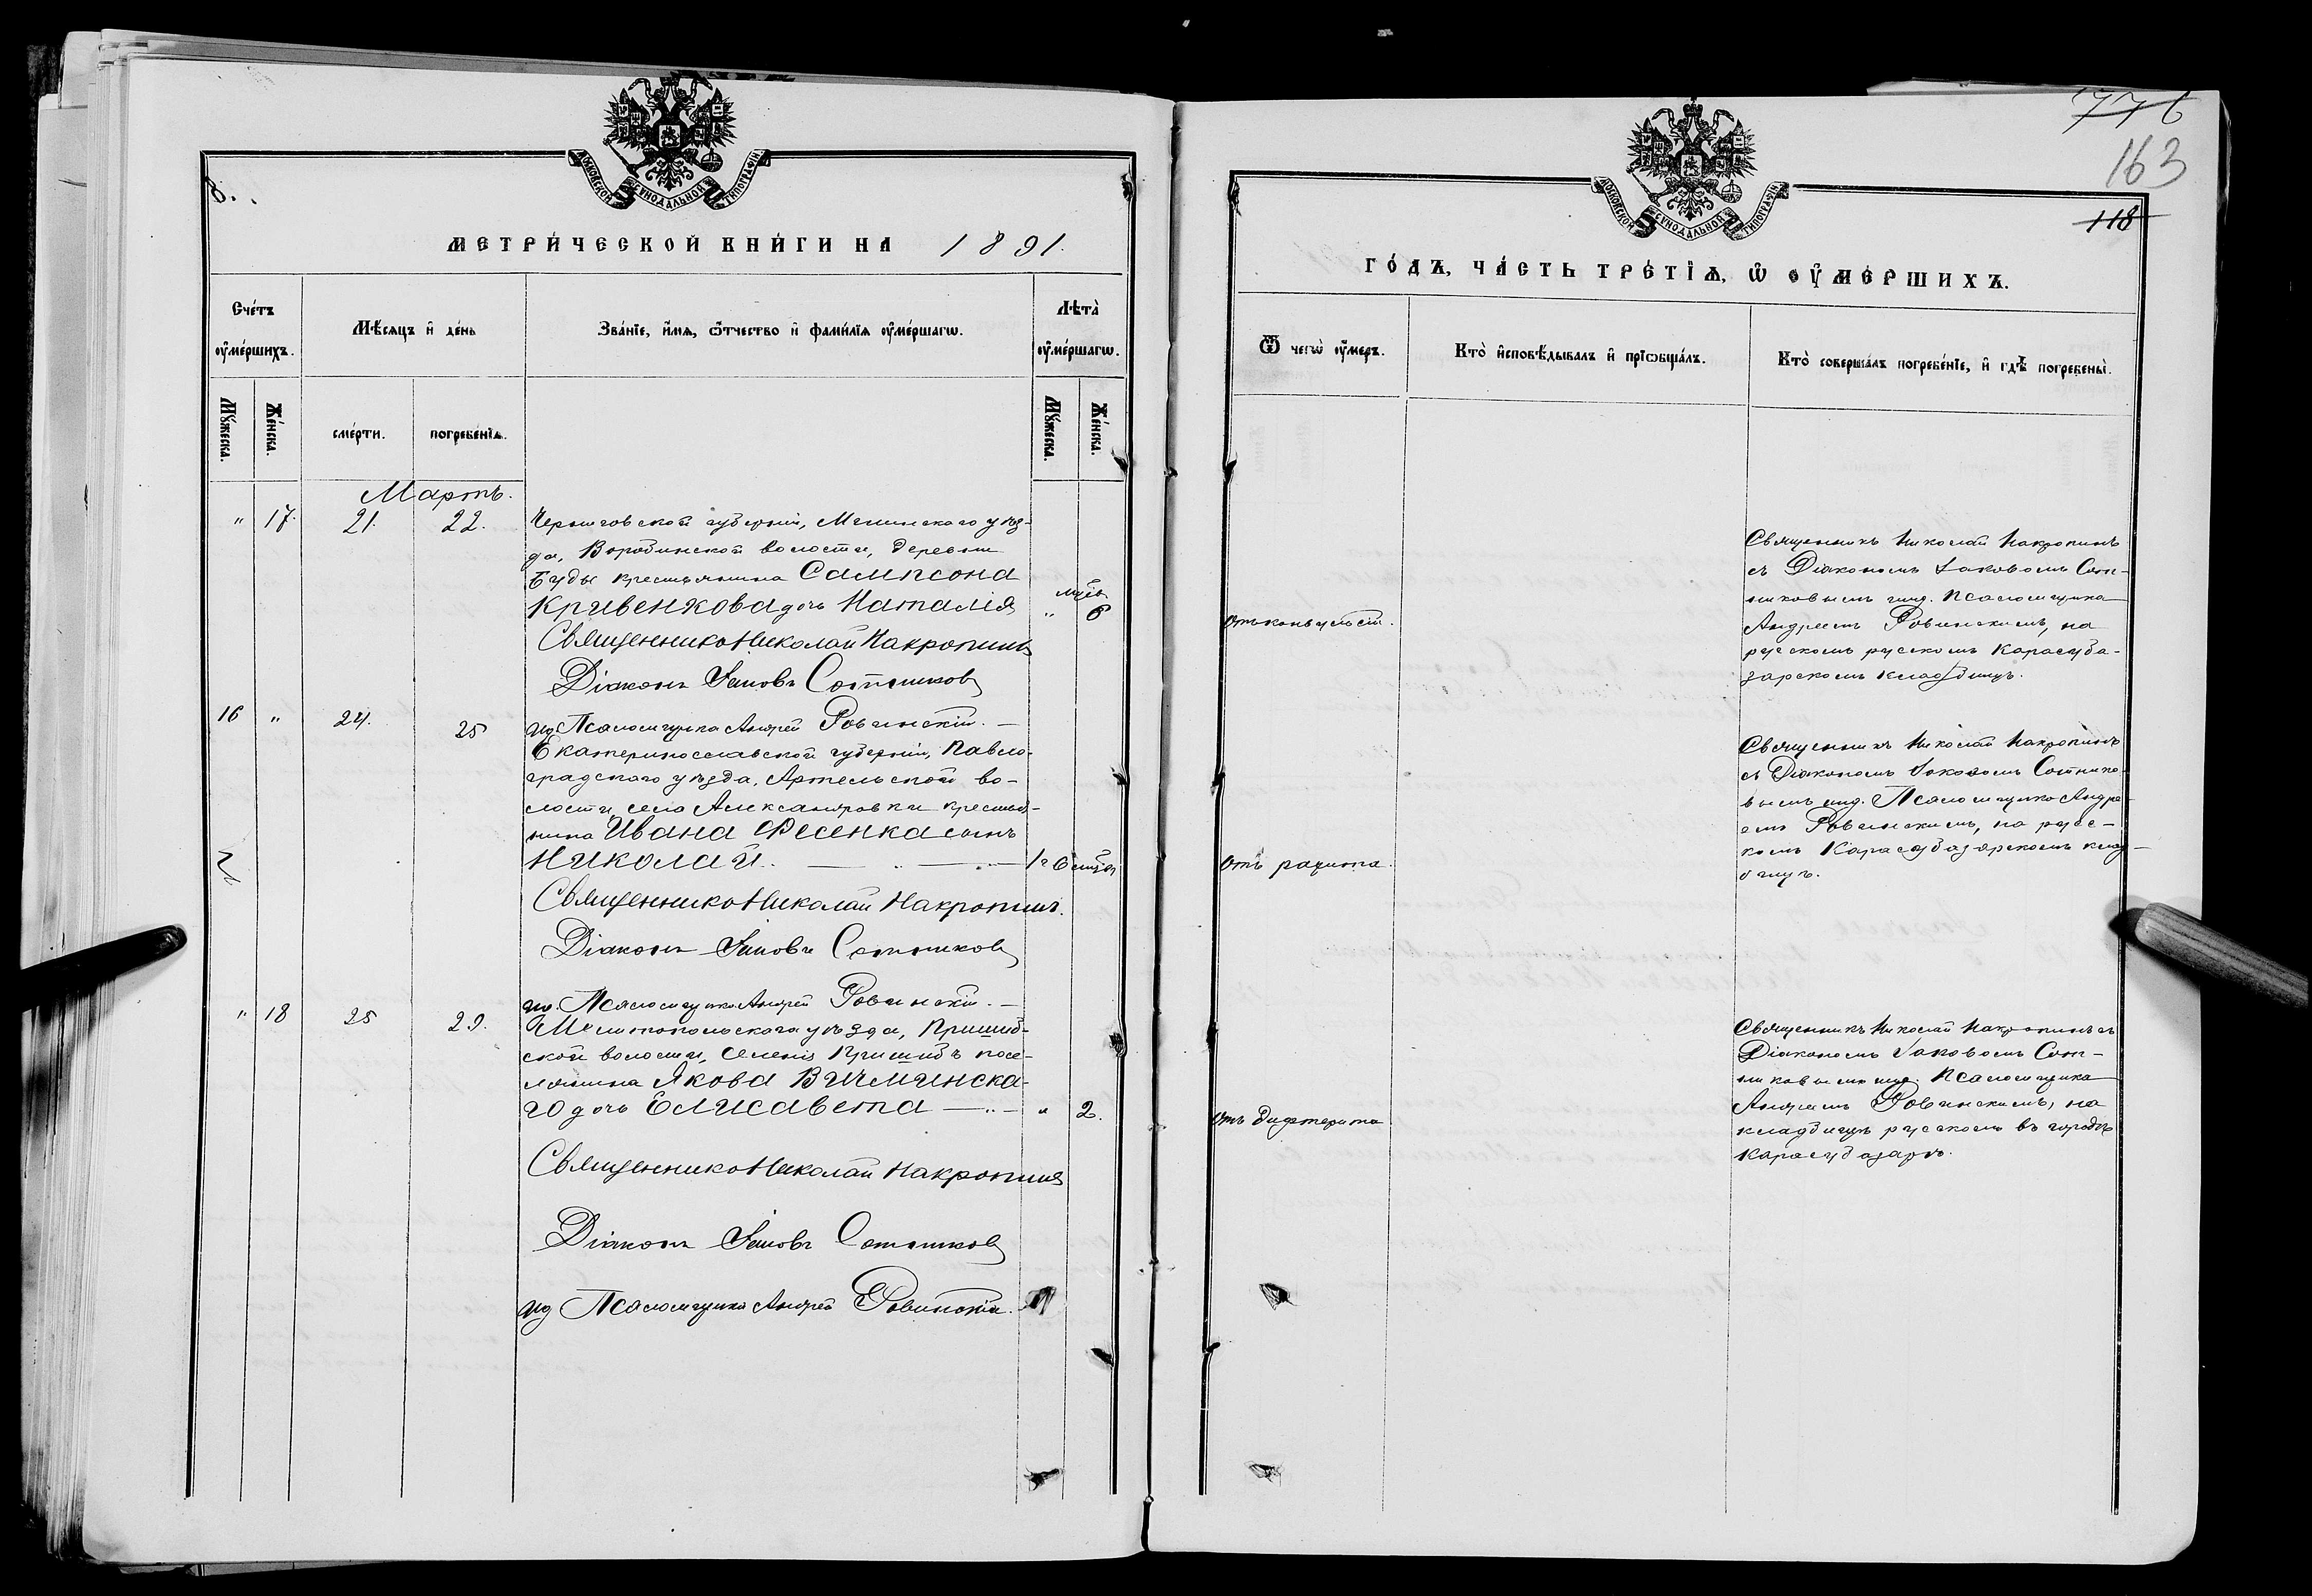 МОСКОВСКОЙ СѴНОДАЛЬНОЙ ТИПОГРАФІИ
МЕТРИ́ЧЕСКОЙ КНИ́ГИ НА 1891.
Счéтъ ᲂу҆мéршихъ.
Мѣ́сяцъ и҆ дéнь
Звáнїе, и҆́мя, ѻ҆́тчество и҆ фами́лїя ᲂу҆мéршагѡ.
Лѣтà ᲂу҆мéршагѡ.
Мꙋ́жеска.
Жéнска.
смéрти.
погребéнїѧ.
Мꙋ́жеска.
Жéнска.
Мартъ.
" 17. 21. 22. Черниговской губерніи, Мглинскаго уѣз-
да, волости, деревни
Буды крестьянина Сампсона
Кривенкова дочь Наталія " мѣс. 6
Священникъ Николай Накропинъ
Діаконъ Іаковъ Сотниковъ
ид. Псаломщика Андрей Ровинскій. —
16 " 24. 25
Екатеринославской губерніи, Павло-
градскаго уѣзда, Артельской во-
лости, села Александровки крестья-
нина Ивана Фесенка сынъ
Николай. 1 г 6 мѣся
Священникъ Николай Накропинъ.
Діаконъ Іаковъ Сотниковъ
ид. Псаломщика Андрей Ровинскій. —
" 18 25 29. Мелитопольскаго уѣзда, Пришиб-
ской волости, селенія Пришибъ посе-
лянина Якова Вичминска-
го дочь Елисавета — " 2.
Священникъ Николай Накропинъ
Діаконъ Іаковъ Сотниковъ
ид Псаломщика Андрей Ровинскій.
163
118
МОСКОВСКОЙ СѴНОДАЛЬНОЙ ТИПОГРАФІИ
ГÓДЪ, ЧÁСТЬ ТРÉТЇѦ, Ѡ҆ ОУ҆МÉРШИХЪ.
Ѿ чегѡ̀ ᲂу҆́меръ.
Ктò и҆сповѣ́дывалъ и҆ прїѡбщáлъ.
Ктò совершáлъ погребéнїе, и҆ гдѣ̀ погребены̀.
Священникъ Николай Накропинъ
съ Діакономъ Іаковомъ Сот-
никовымъ и ид. Псаломщика
Отъ конвульсій.
Андреемъ Ровинскимъ, на
русскомъ русскомъ Карасуба-
зарскомъ кладбищѣ.
Священникъ Николай Накропинъ
съ Діакономъ Іаковомъ Сотнико-
вымъ и ид. Псаломщика Андре-
емъ Ровинскимъ, на русс-
комъ Карасубазарскомъ клад-
Отъ рахита.
бищѣ.
Священникъ Николай Накропинъ съ
Діакономъ Іаковомъ Сот-
никовымъ и ид. Псаломщика
Андреемъ Ровинскимъ, на
Отъ дифтерита
кладбищѣ русскомъ въ городѣ
Карасубазарѣ.